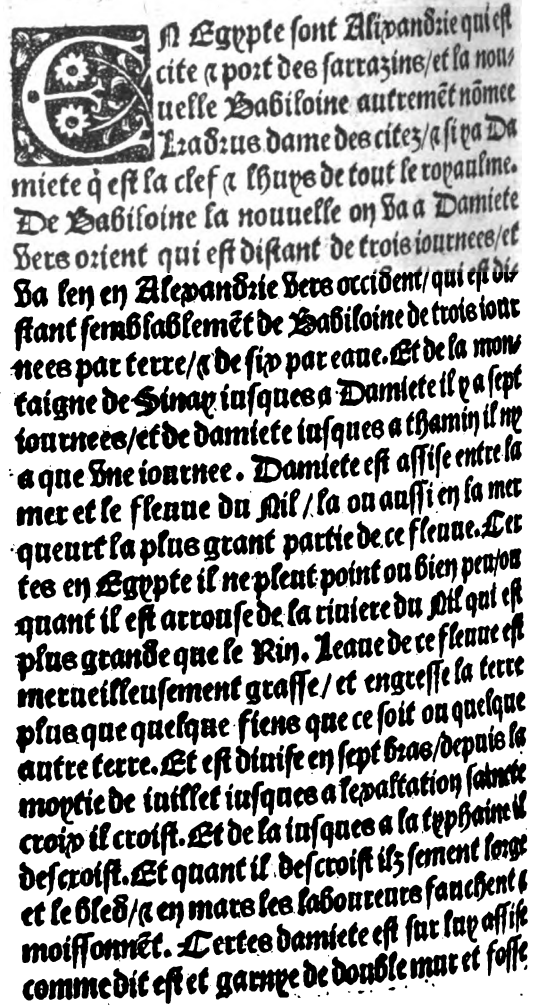 EN Egypte sont Alixandrie qui est
cite ⁊ port des sarrazins/et la nou⸗
uelle Babiloine autremẽt nõmee
Lradrus dame des citez/⁊ si ya Da
miete q̃ est la clef ⁊ lhuys de tout le royaulme.
De Babiloine la nouuelle on va a Damiete
vers orient qui est distant de trois iournees/et
va len en Alexandrie vers occident/qui est di⸗
stant semblablemẽt de Babiloine de trois iour
nees par terre/⁊ de six par eaue. Et de la mon⸗
taigne de Sinay iusques a Damiete il y a sept
iournees/et de damiete iusques a thamin il ny
a que vne iournee. Damiete est assise entre la
mer et le fleuue du Nil/la ou aussi en la mer
queurt la plus grant partie de ce fleuue. Cer
tes en Egypte il ne pleut point ou bien peu/ou
quant il est arrouse de la riuiere du Nil qui est
plus grande que le Rin. Leaue de ce fleuue est
merueilleusement grasse/et engresse la terre
plus que quelque fiens que ce soit ou quelque
autre terre. Et est diuise en sept bras/depuis la
moytie de iuillet iusques a lexaltation saincte
croix il croist. Et de la iusques a la typhaine il
descroist. Et quant il descroist ilz sement lorge
et le bled/⁊ en mars les laboureurs fauchent ⁊
moissonnẽt. Certes damiete est sur luy assise
comme dit est et garnye de double mur et fosse